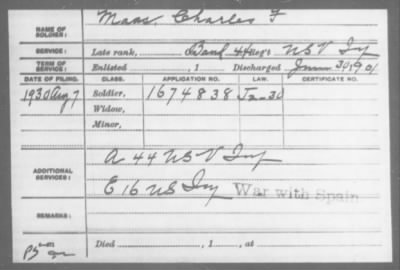 NAME OF SOLDIER: Maas Charles F
SERVICE: Late rank, Band 44 Reg't U S V Inf
TERM OF SERVICE: Enlisted , 1 Discharged 30, 1901
DATE OF FILING. CLASS. APPLICATION NO. LAW. CERTIFICATE NO.
1930 Aug 7 Soldier, 1674838
Widow,
Minor,
A 44 U S V Inf
ADDITIONAL SERVICES: E 16 U S Inf War with Spain
REMARKS:
Died , 1 , at